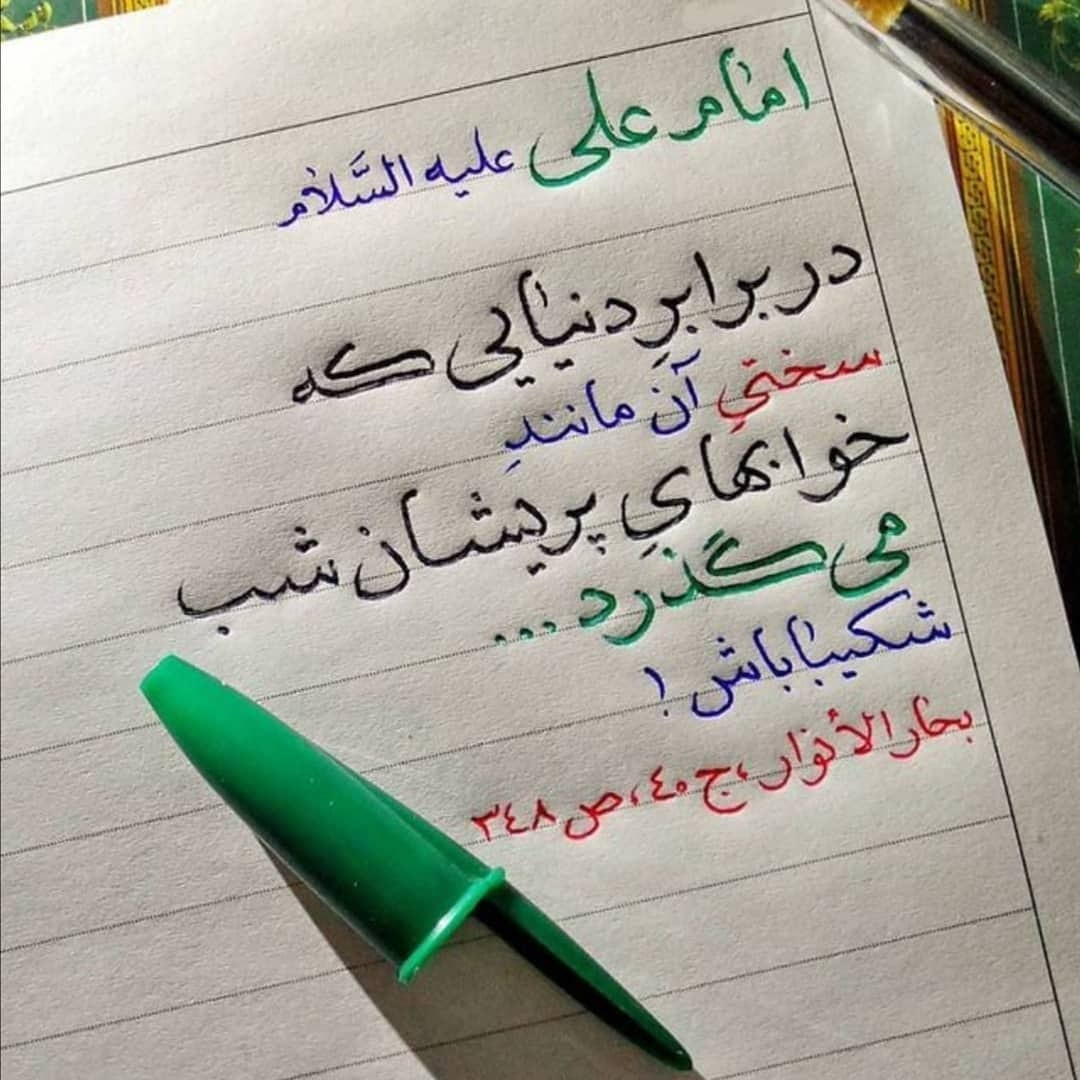 امام علی علیه السَّلام
در برابرِ دنیایی که
سختیِ آن مانندِ
خوابهایِ پریشان شب
می گذرد...
شکیبا باش!
بحار الأنوار، ج ٤٠، ص ٣٤٨